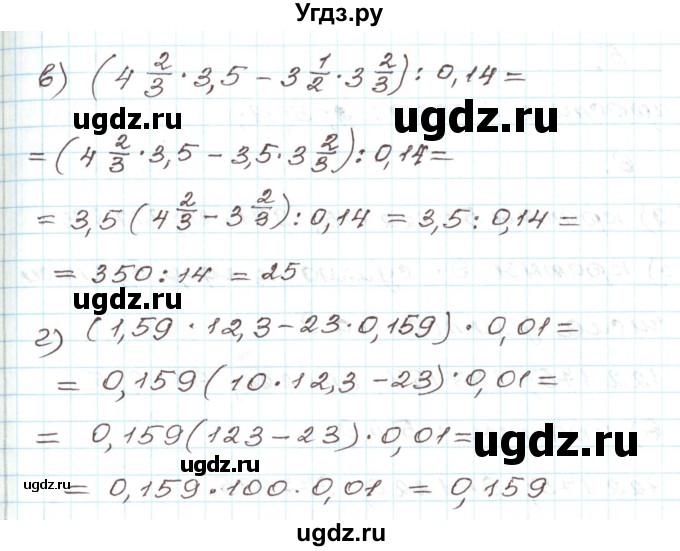 Угдз.ру
в) (4 2/3 · 3,5 - 3 1/2 · 3 2/3) : 0,14 =
ugdz.ru ugdz.ru
= (4 2/3 · 3,5 - 3,5 · 3 2/3) : 0,14 =
= 3,5 (4 2/3 - 3 2/3) : 0,14 = 3,5 : 0,14 =
ugdz.ru ugdz.ru
= 350 : 14 = 25
ugdz.ru
г) (1,59 · 12,3 - 23 · 0,159) · 0,01 =
= 0,159 (10 · 12,3 - 23) · 0,01 =
= 0,159 (123 - 23) · 0,01 =
ugdz.ru ugdz.ru
ugdz.ru
= 0,159 · 100 · 0,01 = 0,159
ugdz.ru